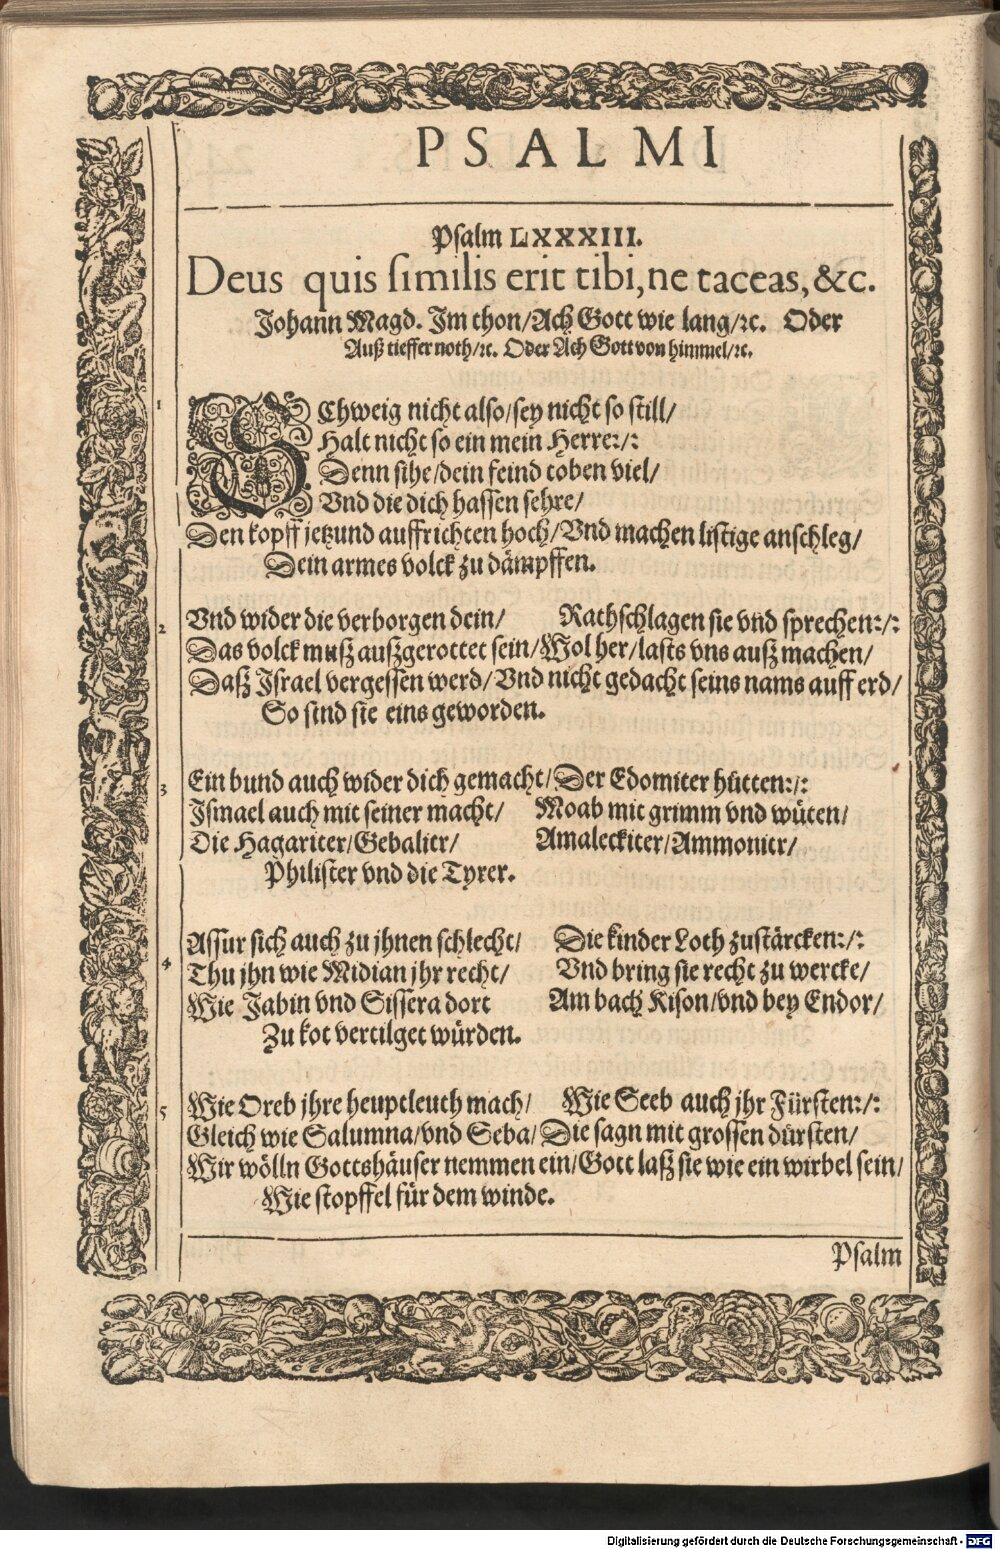 PSALMI
Psalm LXXXIII.
Deus quis ſimilis erit tibi, ne taceas, &c.
Johann Magd. Im thon/Ach Gott wie lang/ꝛc. Oder
Auß tieffer noth/ꝛc. Oder Ach Gott von himmel/ꝛc.
1 SChweig nicht alſo/ſey nicht ſo ſtill/
Halt nicht ſo ein mein Herre:/:
Denn ſihe/dein feind toben viel/
Vnd die dich haſſen ſehre/
Den kopff jetzund auffrichten hoch/Vnd machen liſtige anſchleg/
Dein armes volck zu dämpffen.
2 Vnd wider die verborgen dein/ Rathſchlagen ſie vnd ſprechen:/:
Das volck muß außgerottet ſein/Wol her/laſts vns auß machen/
Daß Iſrael vergeſſen werd/Vnd nicht gedacht ſeins nams auff erd/
So ſind ſie eins geworden.
3 Ein bund auch wider dich gemacht/Der Edomiter hütten:/:
Iſmael auch mit ſeiner macht/ Moab mit grimm vnd wüten/
Die Hagariter/Gebalitr/ Amaleckiter/Ammonitr/
Philiſter vnd die Tyrer.
4 Aſſur ſich auch zu jhnen ſchlecht/ Die kinder Loth zuſtärcken:/:
Thu jhn wie Midian jhr recht/ Vnd bring ſie recht zu wercke/
Wie Jabin vnd Siſſera dort Am bach Kiſon/vnd bey Endor/
Zu kot vertilget würden.
5 Wie Oreb jhre heuptleuth mach/ Wie Seeb auch jhr Fürſten:/:
Gleich wie Salumna/vnd Seba/Die ſagn mit groſſen dürſten/
Wir wölln Gottshäuſer nemmen ein/Gott laß ſie wie ein wirbel ſein/
Wie ſtopffel für dem winde.
Pſalm
Digitalisierung gefördert durch die Deutsche Forschungsgemeinschaft - DFG